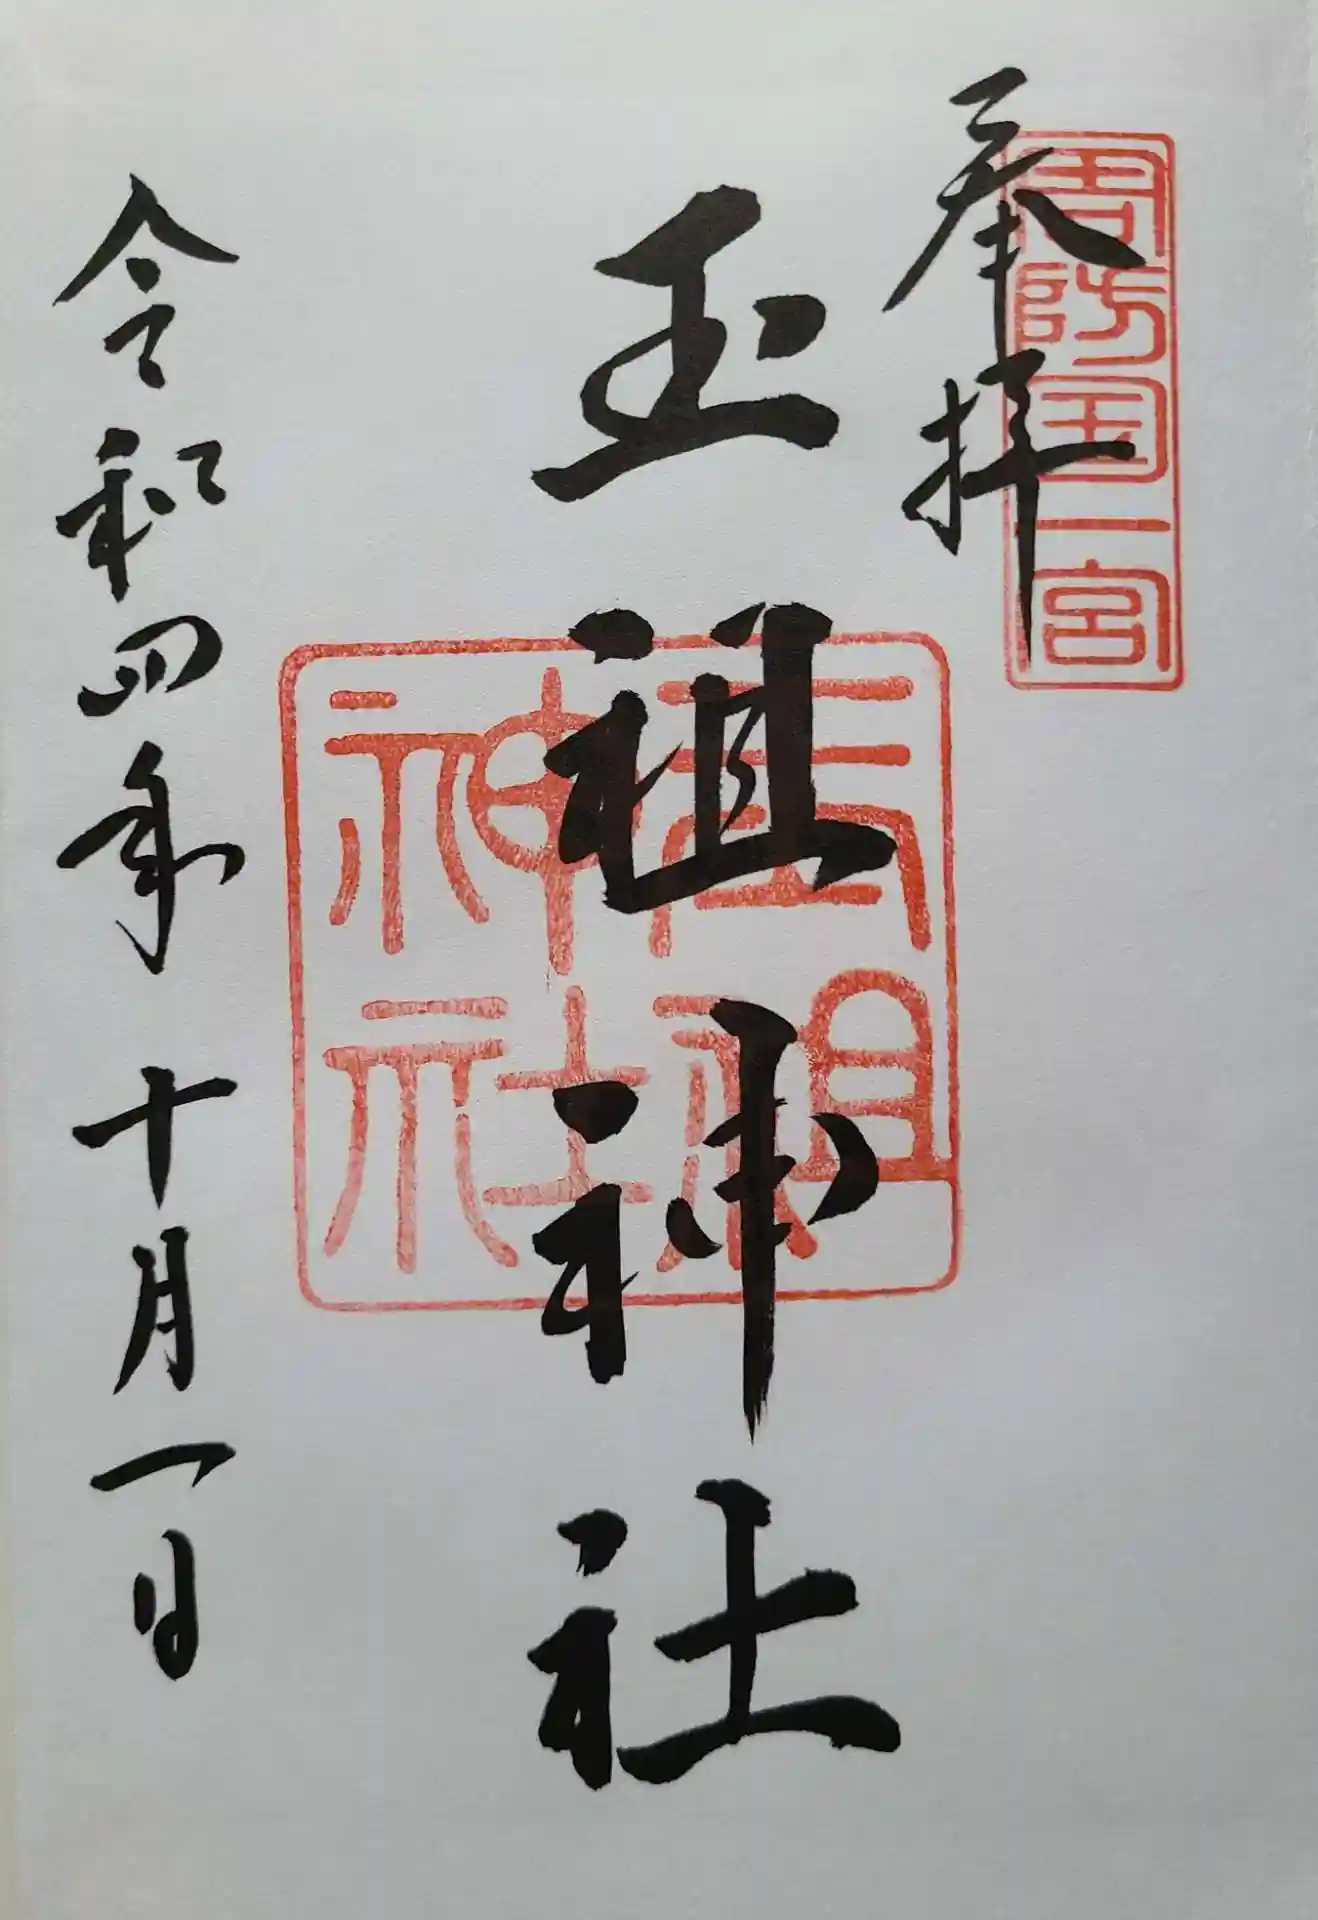 奉拝
周防国一宮
玉祖神社
玉祖神社
令和四年十月一日